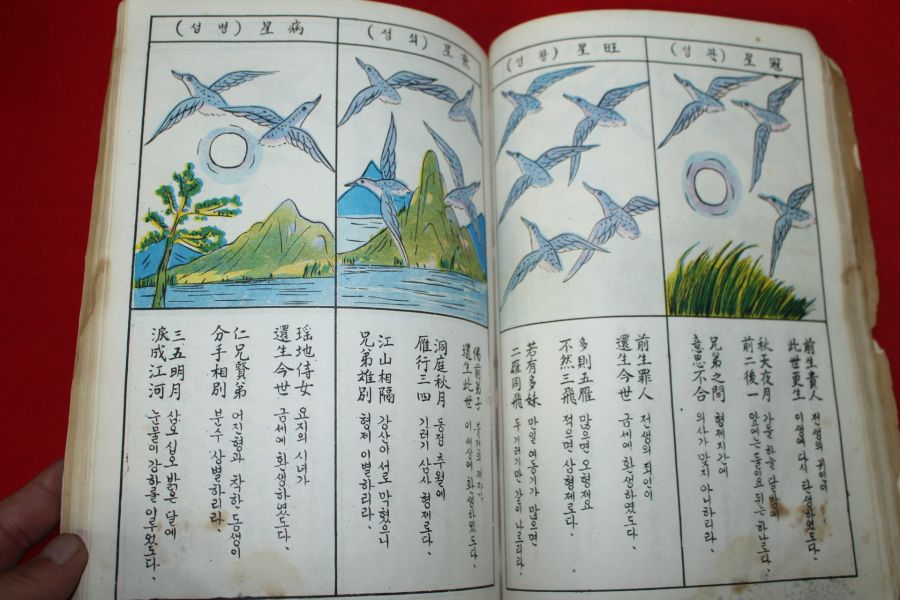 冠星 (관성)
前生貴人
此世更生
전생의 귀인이
이생에 다시 탄생하였도다.
秋天夜月
前二後一
가을 하늘 달밤에
앞에는 둘이요 뒤는 하나도다.
兄弟之間
意思不合
형제지간에
의사가 맞지 아니하리라.
旺星 (왕성)
前生罪人
還生今世
전생의 죄인이
금세에 환생하였도다.
多則五雁
不然三飛
많으면 오형제요
적으면 삼형제로다.
若有多妹
二雁同飛
만일 여동기가 많으면
두 기러기만 같이 나르리라.
衰星 (쇠성)
佛前弟子
還生此世
부처의 제자가
이 세상에 환생하였도다.
洞庭秋月
雁行三四
동정 추월에
기러기 삼사 형제로다.
江山相隔
兄弟離別
강산이 서로 막혔으니
형제 이별하리라.
病星 (병성)
瑤地侍女
還生今世
요지의 시녀가
금세에 환생하였도다.
仁兄賢弟
分手相別
어진 형과 착한 동생이
분수 상별하리라.
三五明月
淚成江河
삼오 십오 밝은 달에
눈물이 강하를 이루었도다.